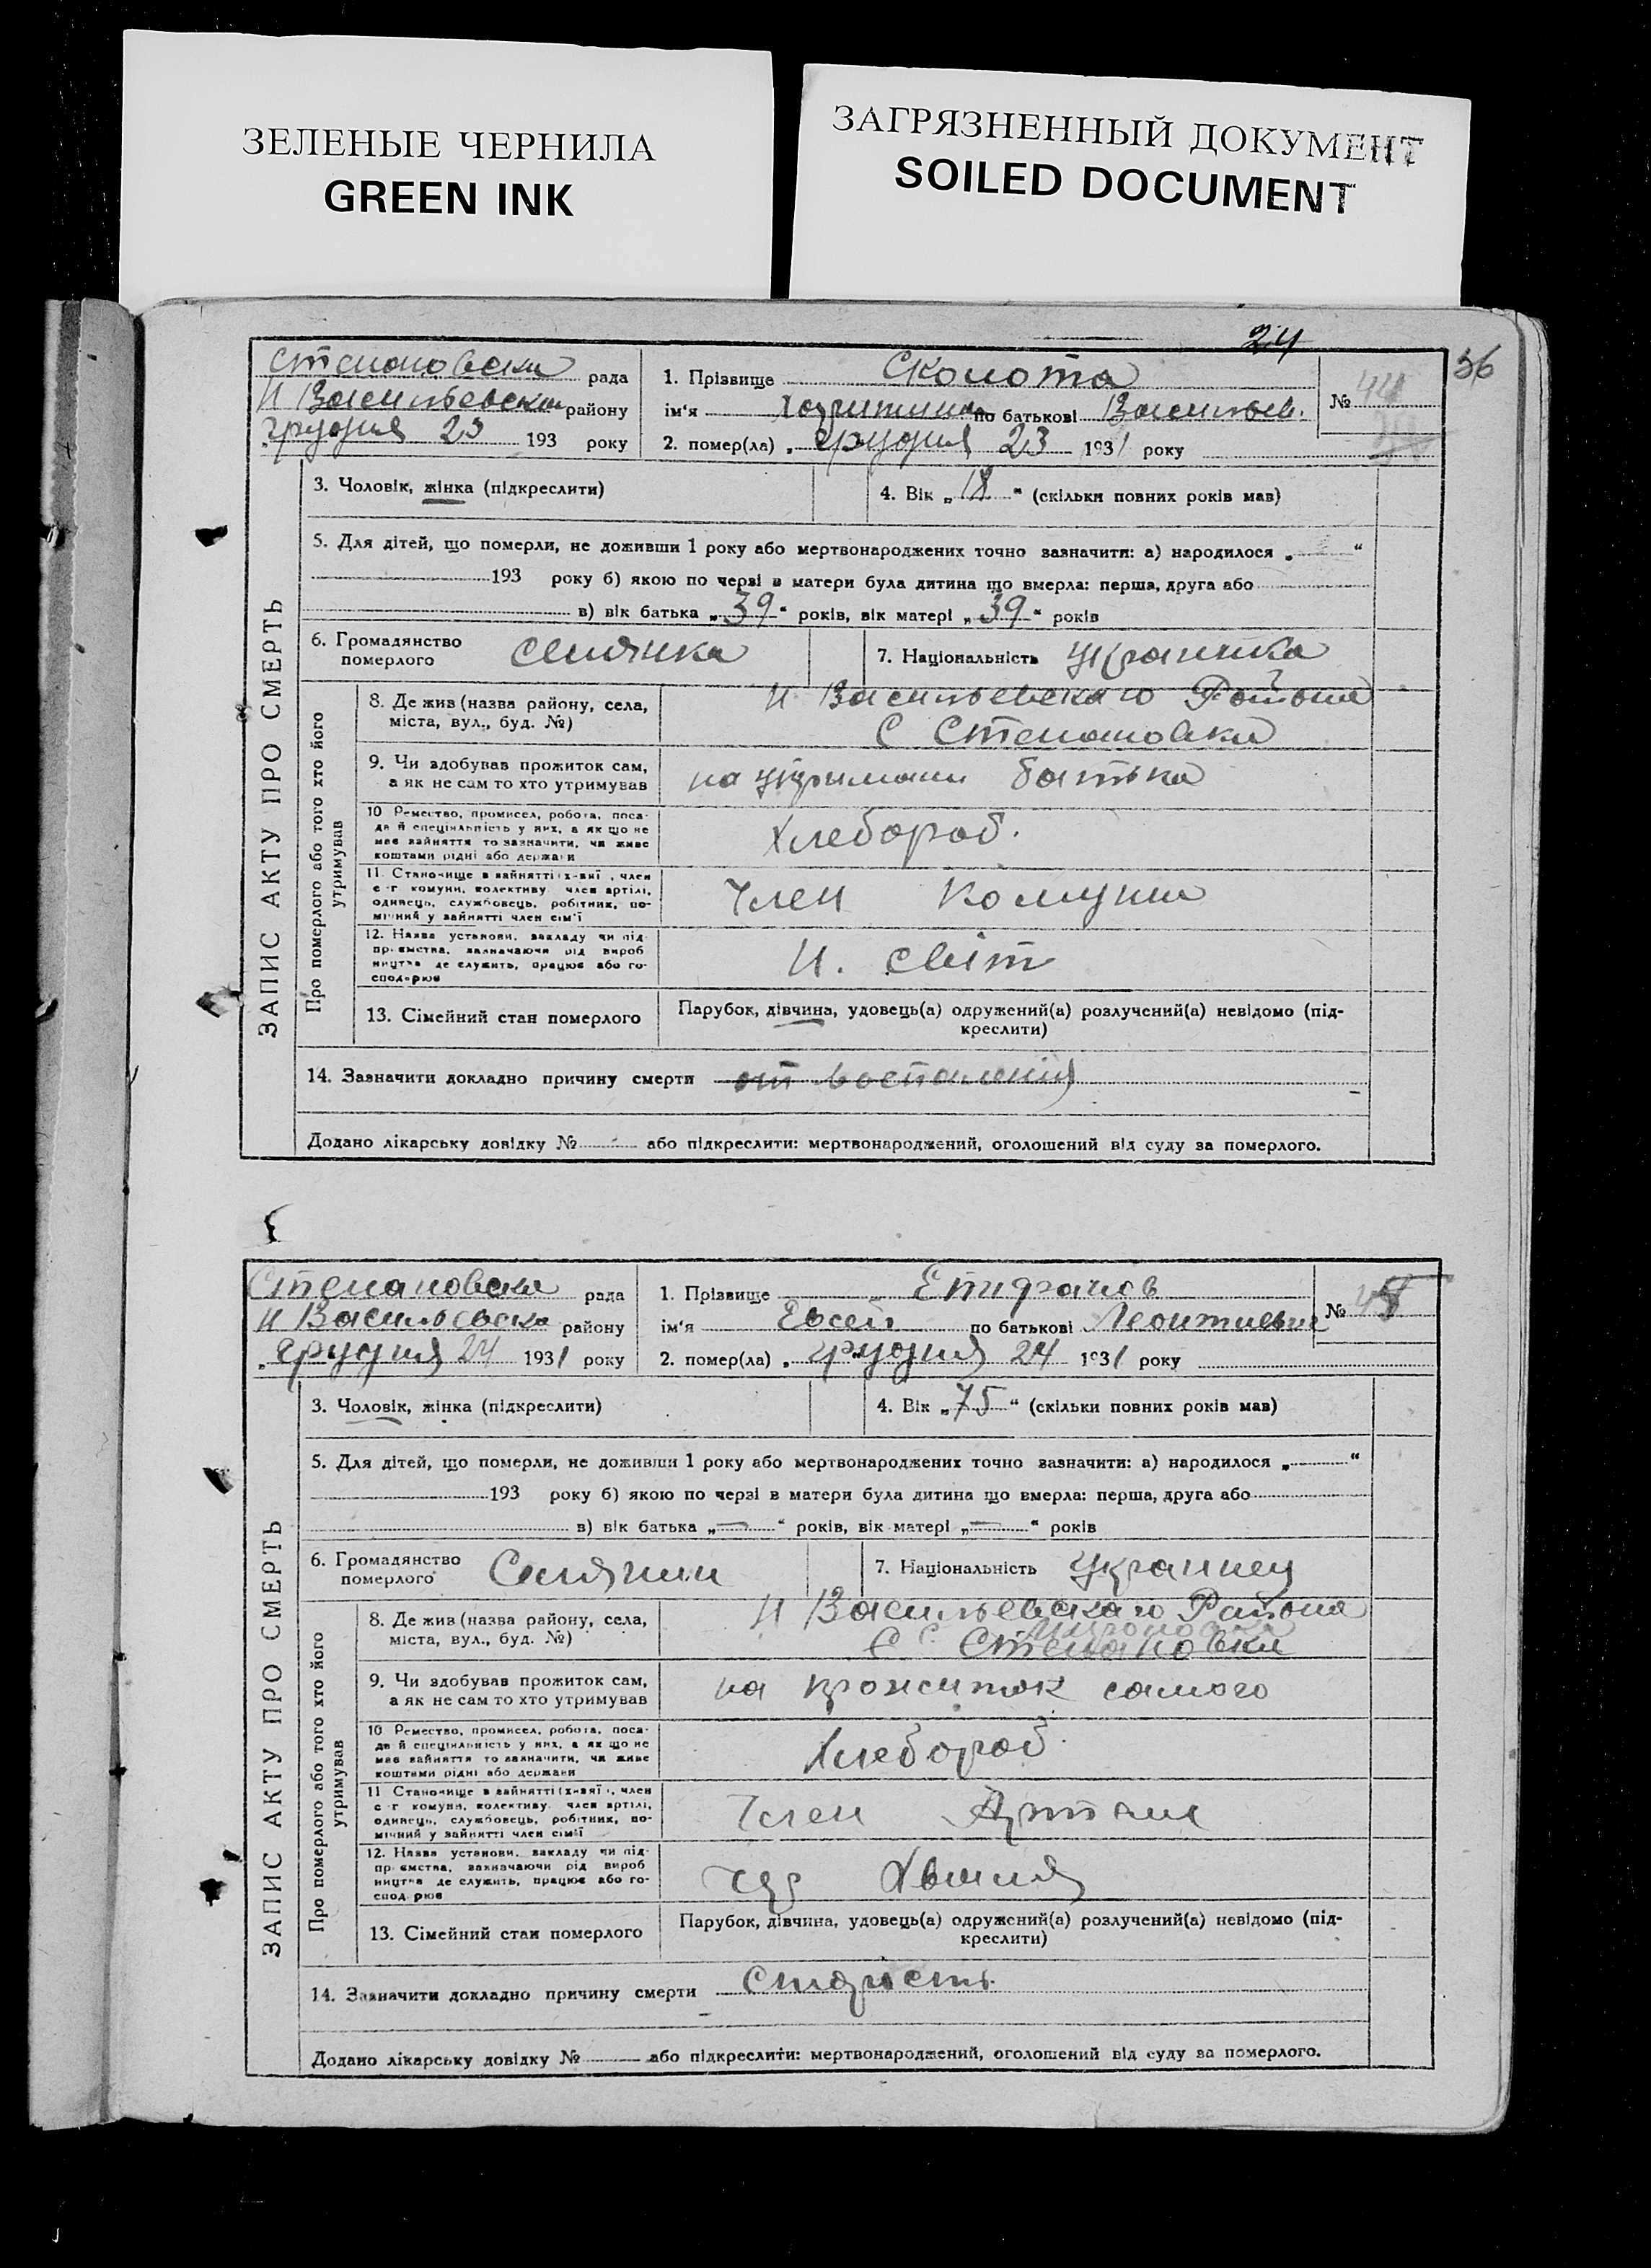 ЗЕЛЕНЫЕ ЧЕРНИЛА
GREEN INK
ЗАГРЯЗНЕННЫЙ ДОКУМЕНТ
SOILED DOCUMENT
24
36
ЗАПИС АКТУ ПРО СМЕРТЬ
Степановска рада
Н Васильевски району
грудня 23 193 року
1. Прізвище Сколота
№ 44
ім'я по батькові Васильев.
2. помер(ла) „ грудня 23 1931 року
3. Чоловік, жінка (підкреслити)
4. Вік „18“ (скільки повних років мав)
5. Для дітей, що померли, не доживши 1 року або мертвонароджених точно зазначити: а) народилося „ “
193 року б) якою по черзі в матери була дитина що вмерла: перша, друга або
в) вік батька „39“ років, вік матері „39“ років
6. Громадянство померлого селянка
7. Національність Українка
Про померлого або того хто його утримував
8. Де жив (назва району, села, міста, вул., буд. №)
Н Васильевскаго Района
С Степановка
9. Чи здобував прожиток сам, а як не сам то хто утримував
на утримани батька
10 Ремество, промисел, робота, посада й спеціяльність у них, а як що не має зайняття то зазначити, чи живе коштами рідні або держави
Хлебороб.
11. Становище в зайнятті: х-зяї, член с-г комуни, колективу член артілі, одинець, службовець, робітник, помічний у зайнятті член сім'ї
Член Комуни
12. Назва установи, закладу чи підпр-ємства, зазначаючи рід виробництва де служить, працює або господарює
Н. світ
13. Сімейний стан померлого
Парубок, дівчина, удовець(а) одружений(а) розлучений(а) невідомо (підкреслити)
14. Зазначити докладно причину смерти от воспаления
Додано лікарську довідку № або підкреслити: мертвонароджений, оголошений від суду за померлого.
ЗАПИС АКТУ ПРО СМЕРТЬ
Степановска рада
Н Васильевска району
„ грудня 24 1931 року
1. Прізвище Епифанов
№ 45
ім'я Евсей по батькові Леонтиевич
2. помер(ла) „ грудня 24 1931 року
3. Чоловік, жінка (підкреслити)
4. Вік „75“ (скільки повних років мав)
5. Для дітей, що померли, не доживши 1 року або мертвонароджених точно зазначити: а) народилося „ “
193 року б) якою по черзі в матери була дитина що вмерла: перша, друга або
в) вік батька „—“ років, вік матері „—“ років
6. Громадянство померлого Селянин
7. Національність Украинец
Про померлого або того хто його утримував
8. Де жив (назва району, села, міста, вул., буд. №)
Н Васильевскаго Района
С Степановка
9. Чи здобував прожиток сам, а як не сам то хто утримував
на прожиток самого
10 Ремество, промисел, робота, посада й спеціяльність у них, а як що не має зайняття то зазначити, чи живе коштами рідні або держави
Хлебороб
11 Становище в зайнятті: х-зяї, член с-г комуни, колективу член артілі, одинець, службовець, робітник, помічний у зайнятті член сім'ї
Член Артели
12. Назва установи, закладу чи підпр-ємства, зазначаючи рід виробництва де служить, працює або господарює
13. Сімейний стан померлого
Парубок, дівчина, удовець(а) одружений(а) розлучений(а) невідомо (підкреслити)
14. Зазначити докладно причину смерти старость
Додано лікарську довідку № або підкреслити: мертвонароджений, оголошений від суду за померлого.